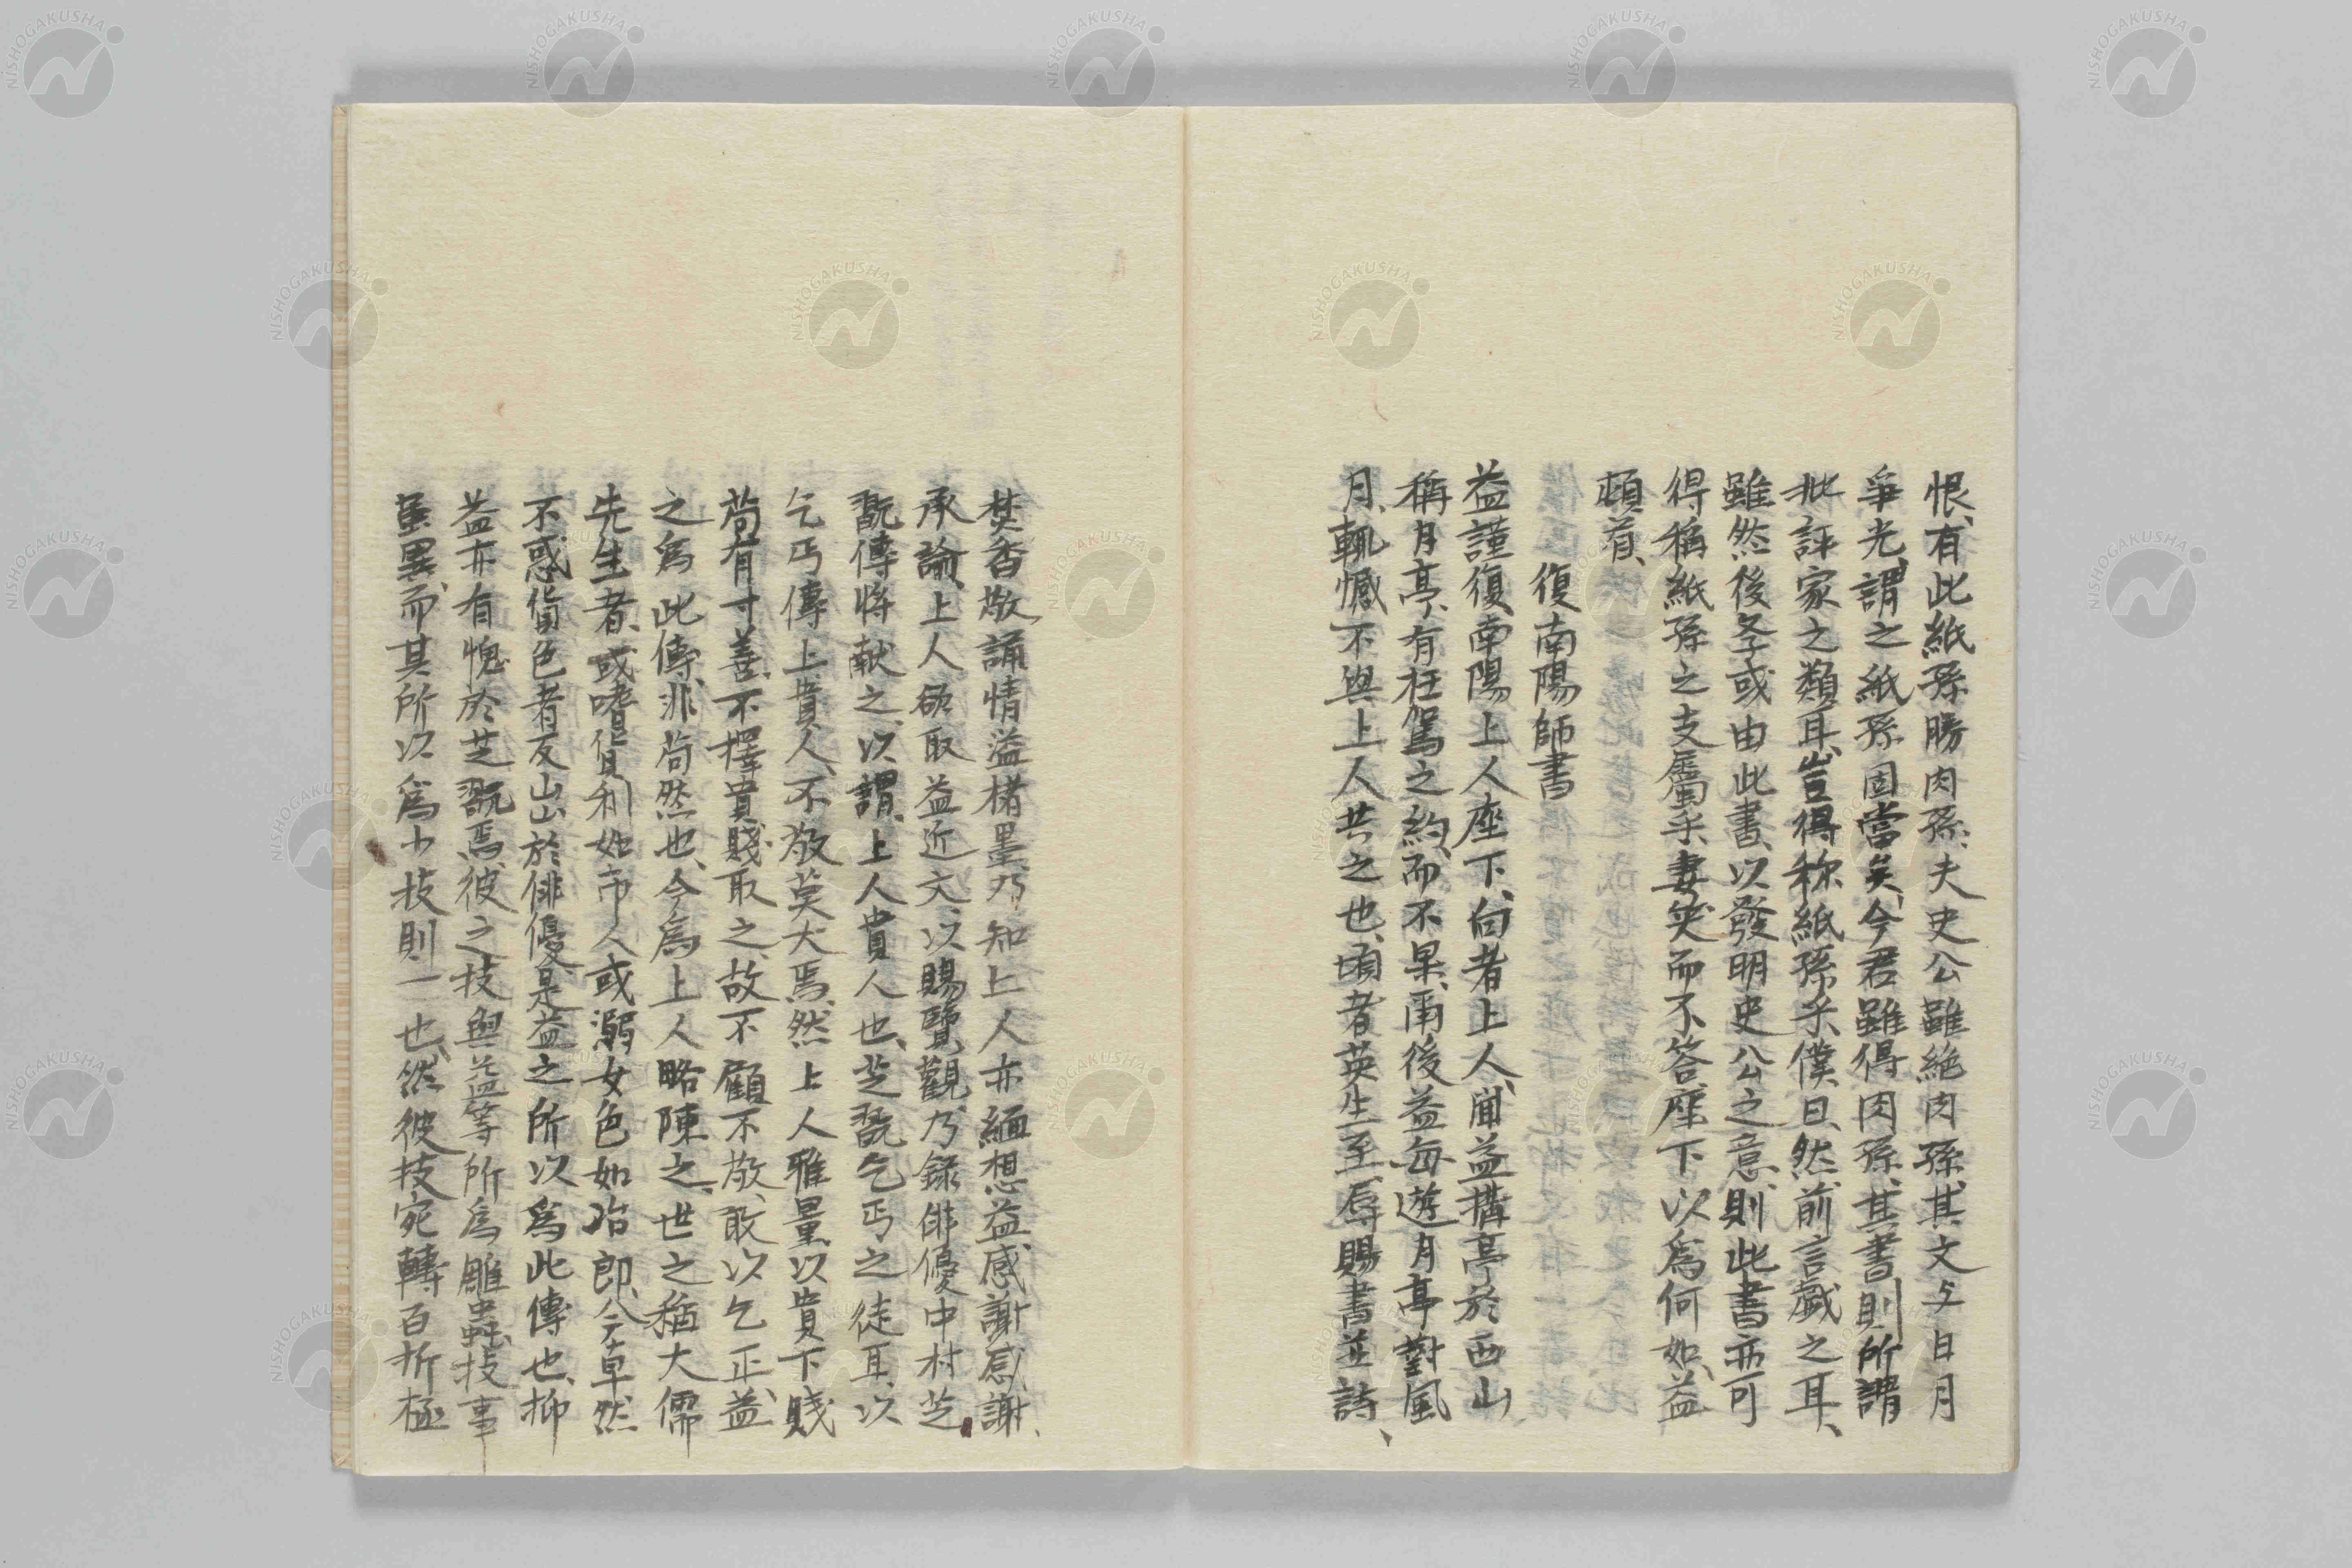 恨、有此紙孫勝肉孫、夫史公雖絶肉孫、其文与日月
爭光、謂之紙孫固當矣、今君雖得肉孫、其書則所謂
批評家之類耳、豈得称紙孫乎、僕曰、然、前言戯之耳、
雖然後年或由此書、以發明史公之意、則此書亦可
得稱紙孫之支屬乎、妻笑而不答、座下以爲何如、益
頓首、
復南陽師書
益謹復、南陽上人座下、向者上人、聞益搆亭於西山
稱月亭、有枉駕之約、而不果、爾後益每遊月亭、對風
月、輒憾不與上人共之也、頃者英生至、辱賜書並詩、
焚香敬誦情溢楮墨、乃知上人亦緬想益、感謝感謝、
承諭、上人欲取益近文、以賜覽觀、乃録俳優中村芝
翫傳将献之、以謂、上人貴人也、芝翫乞丐之徒耳、以
乞丐傳上貴人、不敬莫大焉、然上人雅量、以貴下賤
苟有寸善、不擇貴賤取之、故不顧不敬、敢以乞正、益
之爲此傳、非苟然也、今爲上人略陳之、世之稱大儒
先生者、或嗜貨利如市人、或溺女色如冶郎、今卓然
不惑貨色者、反出於俳優、是益之所以爲此傳也、抑
益亦有愧於芝翫焉、彼之技與益等所爲雕蟲技事
虽異、而其所以爲小技則一也、然彼技宛轉百折極